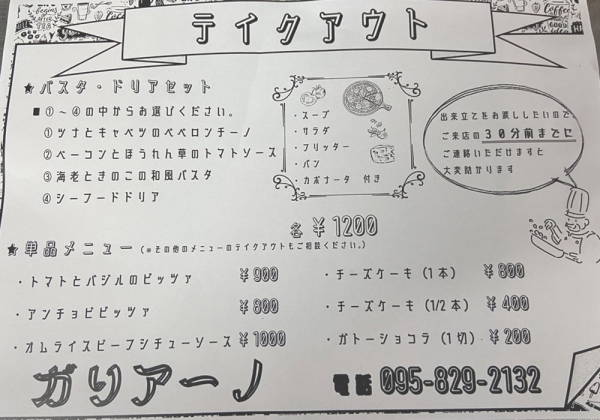 テイクアウト
★パスタ・ドリアセット
■①~④の中からお選びください。
①ツナとキャベツのペペロンチーノ
②ベーコンとほうれん草のトマトソース
③海老ときのこの和風パスタ
④シーフードドリア
・スープ
・サラダ
・フリッター
・パン
・カポナータ 付き
各¥1200
出来立てをお渡ししたいので
ご来店の30分前までに
ご連絡いただけますと
大変助かります
★単品メニュー(※その他のメニューのテイクアウトもご相談ください。)
・トマトとバジルのピッツァ ¥900
・アンチョビピッツァ ¥800
・オムライスビーフシチューソース ¥1000
・チーズケーキ(1本) ¥800
・チーズケーキ(1/2本) ¥400
・ガトーショコラ(1切) ¥200
ガリアーノ
電話 095-829-2132